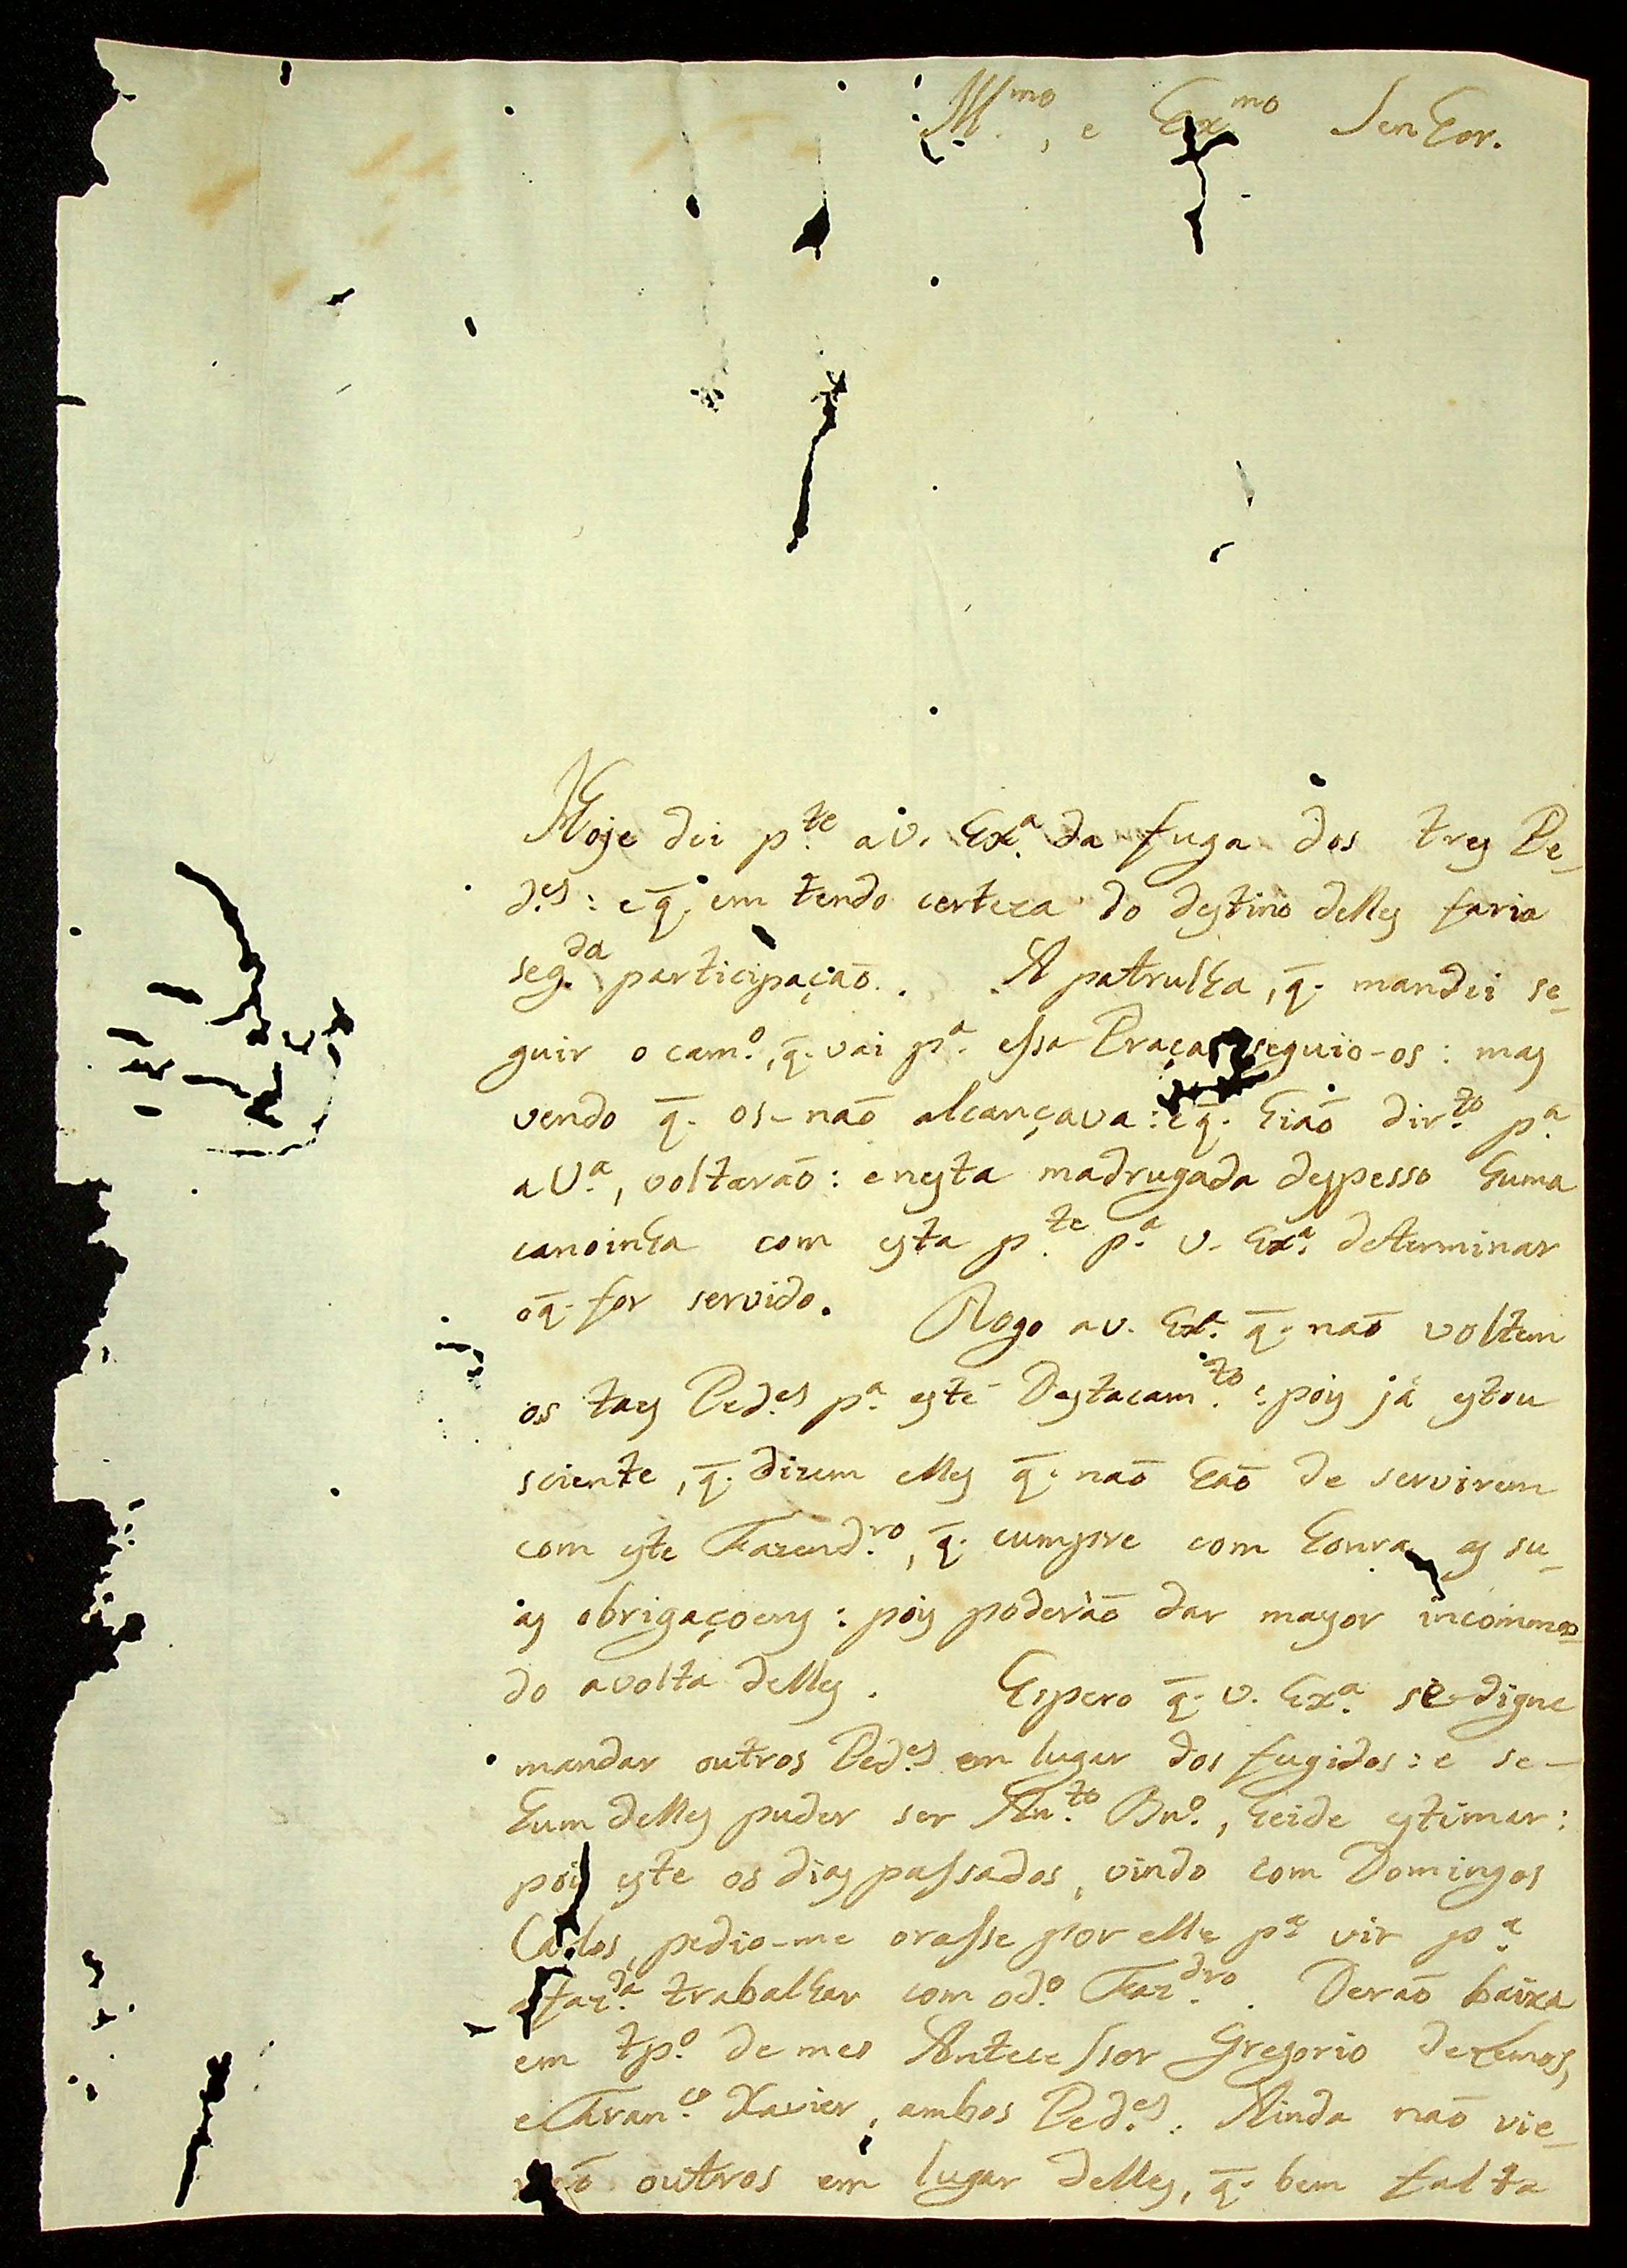 Ill.mo, e Ex.mo Senhor.
Hoje dei p.te a V. Ex.a da fuga dos tres Pe-
d.es: e q̃. em tendo certeza do destino delles faria
seg.da participaçaõ. A patrulha, q̃. mandei se-
guir o cam.o, q̃. vai p.a essa Praça, seguio-os: mas
vendo q̃. os-naõ alcançava: e q̃. hiaõ dir.to p.a
a V.a, voltaraõ: e nesta madrugada despesso huma
canoinha com esta p.te p.a V. Ex.a determinar
o q̃. for servido. Rogo a V. Ex.a q̃. naõ voltem
os taes Ped.es p.a este Destacam.to: pois já estou
sciente, q̃. dizem elles q̃. naõ haõ de servirem
com este Fazend.ro, q̃. cumpre com honra as su-
as obrigaçoens: pois poderaõ dar mayor incommo-
do a volta delles. Espero q̃. V. Ex.a se-digne
mandar outros Ped.es em lugar dos fugidos: e se-
hum delles puder ser An.to Bn.o, heide estimar:
pois este os dias passados, vindo com Domingos
Carlos, pedio-me orasse por elle p.a vir p.a
a faz.da trabalhar com o d.o Faz.dro. Deraõ baixa
em tp.o de meo Antecessor Gregorio de Lemos,
e Fran.co Xavier, ambos Ped.es. Ainda naõ vie-
raõ outros em lugar delles, q̃. bem falta